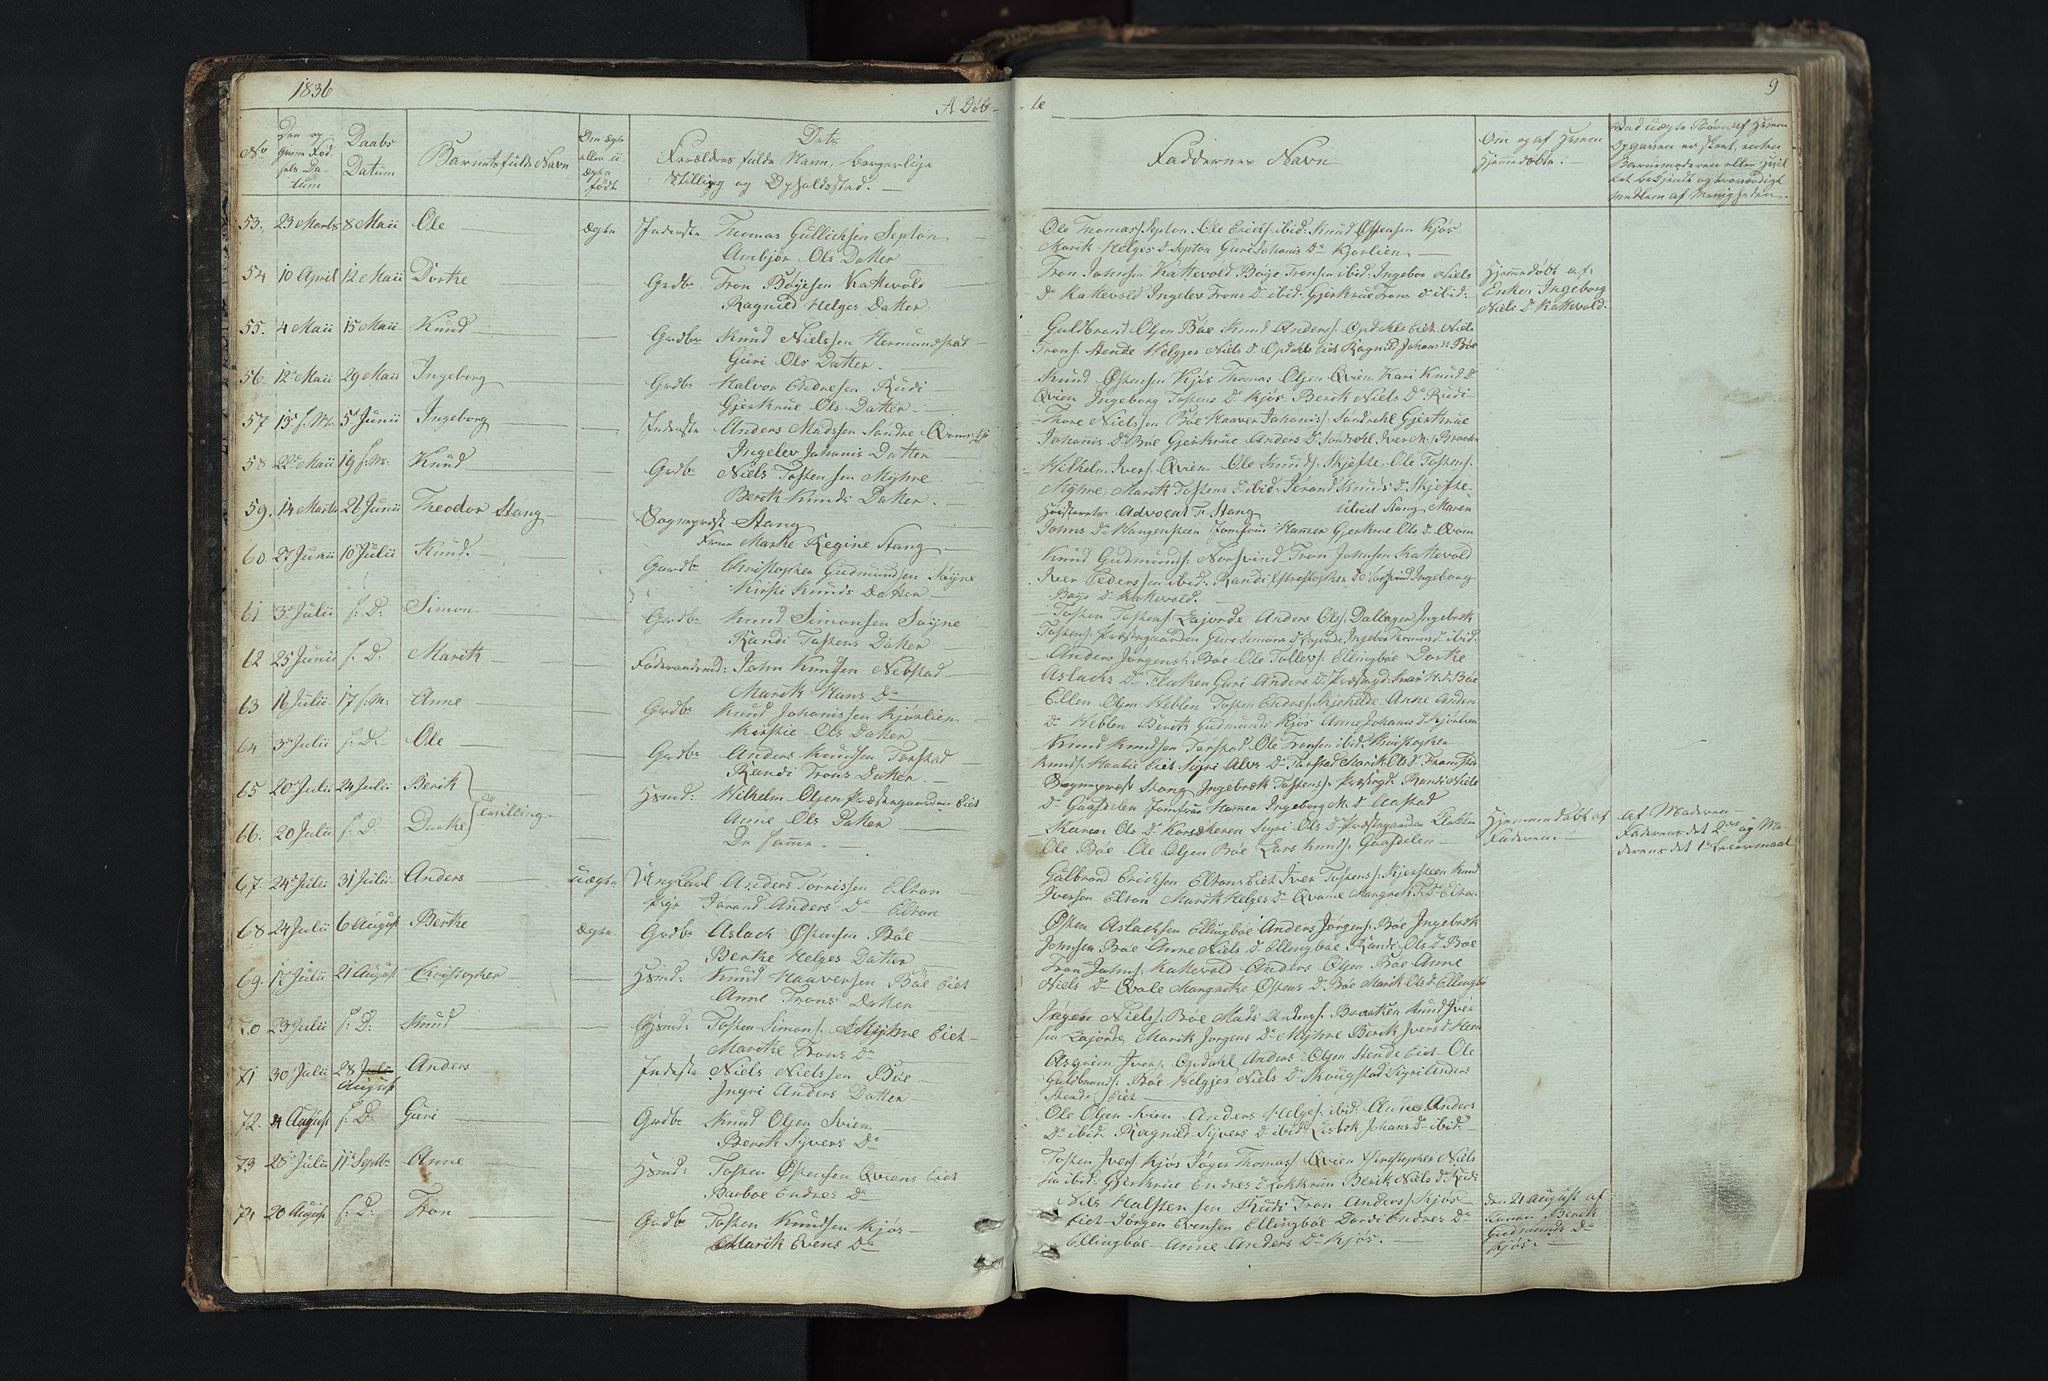 1836
A Døb-
te
9
No
Daabs
Datum
Barnets fulde Navn
Om ægte
eller u
ægte
født
Dets
Forældres fulde Navn, borgerlige
Stilling og Opholdssted.
Faddernes Navn
Om og af Hvem
Hjemmedøbt.
53. 23 Marts 8 Maii Ole ægte Inderste Thomas Gullichsen Septon
Ambjør Ols Datter
Ole Thomas. Septon Ole Erics. ibid: Knud Østensen Kjøs
Marit Helges D. Septon Guri Johanis D. Kjørlien
54 10 April 12 Maii Dorthe Grdbr Tron Bøyesen Kattevold
Ragnild Helges Datter
Tron Johnsen Kattevold Bøye Tronsen ibid: Ingebor Niels
D. Kattevold Ingelev Trons D. ibid: Gjertrue Trons D. ibid:
Hjemmedøbt af
Enken Ingeborg
Niels D. Kattevold.
55. 4 Maii 15 Maii Knud Grdbr Knud Nielssen Hermundstad
Guri Ols Datter
Guldbrand Olsen Bøe Knud Anders. Opdahls Eiet Niels
Trons. Stende Helgjer Niels D. Opdahls Eiet Ragnild Johans D. Bøe
56. 12 Maii 29 Maii Ingeborg Grdbr Halvor Endresen Rudi
Gjertrue Ols Datter
Knud Østensen Kjøs Thomas Olsen Qvien Kari Knud D.
Qvien Ingeborg Tostens D. Kjøs Berit Niels D. Rudi
57 15 s. M. 5 Junii Ingeborg Inderste Anders Madssen Søndre Qvam
Ingelev Johanis Datter
Thore Nielssen Bøe Haaver Johanis. Søndrehl Gjertrue
Johanis D. Bøe Gjertrue Anders D. Søndrehl Iver M.
58 22 Maii 19 s. M. Knud Grdbr Niels Tostensen Myhre
Berit Knuds Datter
Wilhelm Ivers. Qvien Ole Knuds. Skjefte, Ole Tostens.
Myhre Marit Tostens D. ibid: Jørand Knuds D. Skjefte.
59. 14 Marts 26 Junii Theodor Stang Sognepræst Stang
Frue Marthe Regine Stang
Høisterets Advocat Fr. Stang Ulrich Stang Maren
Johns D. Wangensteen Jomfrue Hammer Gjertrue Ols D. Qvam
60. 27 Junii 10 Julii Knud. Gaardbr Christopher Gudmundsen Søyne
Kirsti Knuds Datter
Knud Gudmunds. Norsvind Tron Johnsen Kattevold
Iver Pederssen ibid: Randi Christopher D. Norsvind Ingeborg
Bøye D. Kattevold.
61 3 Julii s. D. Simon Grdbr Knud Simonsen Søyne
Randi Tostens Datter
Tosten Tostens. Lajorde Anders Ols. Dallagen Ingebrek
Tostens. Præstegaarden Guri Simons D. Lajorde, Ingebor Thomas D. ibid.
62 25 Junii s. D. Marith Føderaadsmd: John Knudsen Nebstad
Marit Hans D.
Anders Jørgens. Bøe Ole Tollefs. Ellingbøe Dorthe
Aslachs D. Floken Guri Anders D. Præstegd:
63 16 Julii 17 s. M. Anne Grdbr Knud Johanissen Kjørlien
Kirstie Ols Datter
Ellen Olsen Heblen Tosten Endres. Skjehelde Anne Anders
D. Heblen Berit Gudmunds Kjøs Anne Johanis D. Kjørlien
64 3 Julii s. D. Ole Grdbr Anders Knudsen Terstad
Randi Trons Datter.
Knud Knudsen Terstad Ole Tronsen ibid: Christopher
65 20 Julii 24 Julii Berit Tvilling Hsmd: Wilhelm Olsen Præstegaardens Eiet
Anne Ols Datter
Sognepræst Stang Ingebrek Tostens. Præstegd. Randi Niels
D. Gaasdelen Jomfrue Hamer Ingeborg M. D. Aastad
66. 20 Julii s. D. Dorthe De samme.
Karen Ols D. Korsekeren Sigri Ols D. Præstegaarden
Ole Bøe Ole Olsen Bøe Lars Knuds. Gaasdelen
Hjemmedøbt af
Faderen
af Moderen
67. 24 Julii 31 Julii Anders uægte Ungkarl Anders Torrissen Elton
Pige Jørand Anders D. Elton
Gulbrand Ericksen Eltons Eiet Iver Tostens. Kjersteen Knud
Iversen Elton Marit Helges D. Qvame Mangrethe T. D. Elton
68 24 Julii 6 August Berthe ægte Grdbr Aslach Østensen Bøe
Berthe Helges Datter
Østen Aslachsen Ellingbøe Anders Jørgens. Bøe Ingebrek
Johnsen Bøe Anne Niels D. Ellingbøe Randi Ols D. Bøe
69. 17 Julii 21 August Christopher Hsmd: Knud Haaversen Bøe Eiet
Anne Trons Datter
Tron Johns. Kattevold Anders Olsen Bøe Anne
Niels D. Qvale Mangrethe Østens D. Bøe Marit Ols D. Ellingbø
70 23 Julii s. D. Knud Hsmd: Tosten Simons. Myhre Eiet
Marthe Trons D.
Jøger Niels. Bøe Mads Anders. Braaten Knud Iver
sen Lajorde Marit Jørgens D. Myhre Berit Ivers D. Moen
71 30 Julii 28 August Anders Inderste Niels Nielssen Bøe
Ingri Anders Datter
Asgrim Ivers. Opdahl Anders Olsen Stende Eiet Ole
Guldbrands. Bøe Helgjer Niels D. Skougstad Sigri Anders
Stende Eiet
72. 4 August s. D. Guri Grdbr Knud Olsen Svien
Berit Syvers D.
Ole Olsen Svien Anders Helges. ibid. Anne Anders
D. ibid: Ragnild Syvers D. ibid Lisbet Johans D. ibid.
73 28 Julii 11 Septbr Anne Hsmd: Tosten Østensen Qviens Eiet
Barboe Endres D.
Tosten Ivers. Kjøs Jøger Thomas. Qvien Christopher Niels
sen ibid: Gjertrue Endres D. Løkkrim Berit Niels D. Rudi
74 20 August s. D. Tron Grdbr Tosten Knudsen Kjøs
Marit Evens D.
Nils Halstensen Rudi Tron Anders. Kjøs
Eiet Jørgen Evensen Ellingbøe Dordi Endres D.
Ellingbøe Anne Anders D. Kjøs.
den 21 August af
Konen Berit
Gudmunds D.
Kjøs.